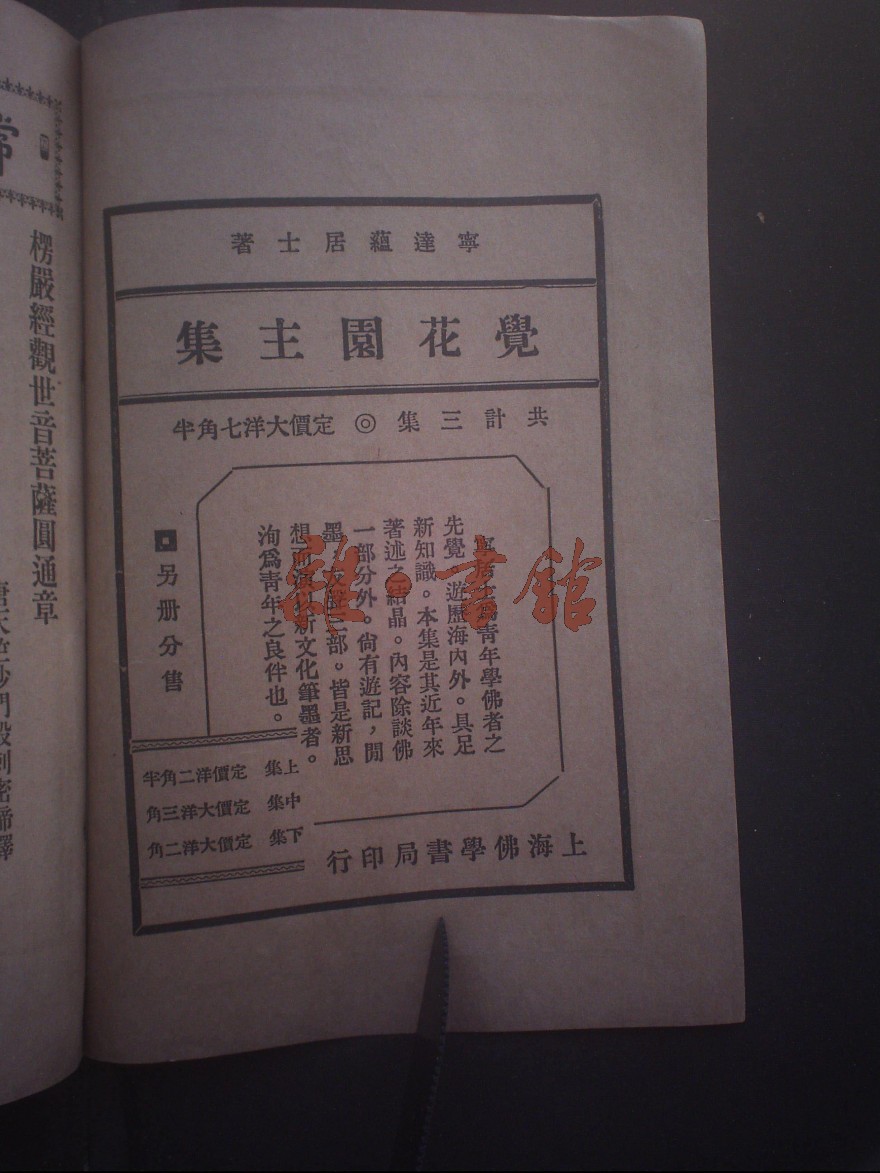 寧達蘊居士著
覺花園主集
共計三集◎定價大洋七角半
寧居士爲青年學佛者之
先覺。遊歷海內外。具足
新知識。本集是其近年來
著述之結晶。內容除談佛
一部分外。尙有遊記，閒
墨，部。皆是新思
想而新文化筆墨者。
洵爲靑年之良伴也。
另册分售
上集 定價洋二角半
中集 定價大洋三角
下集 定價大洋二角
上海佛學書局印行
雜·書館
常
楞嚴經觀世音菩薩圓通章
唐天竺沙門般剌密諦譯